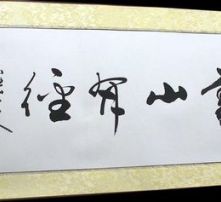 書山有徑